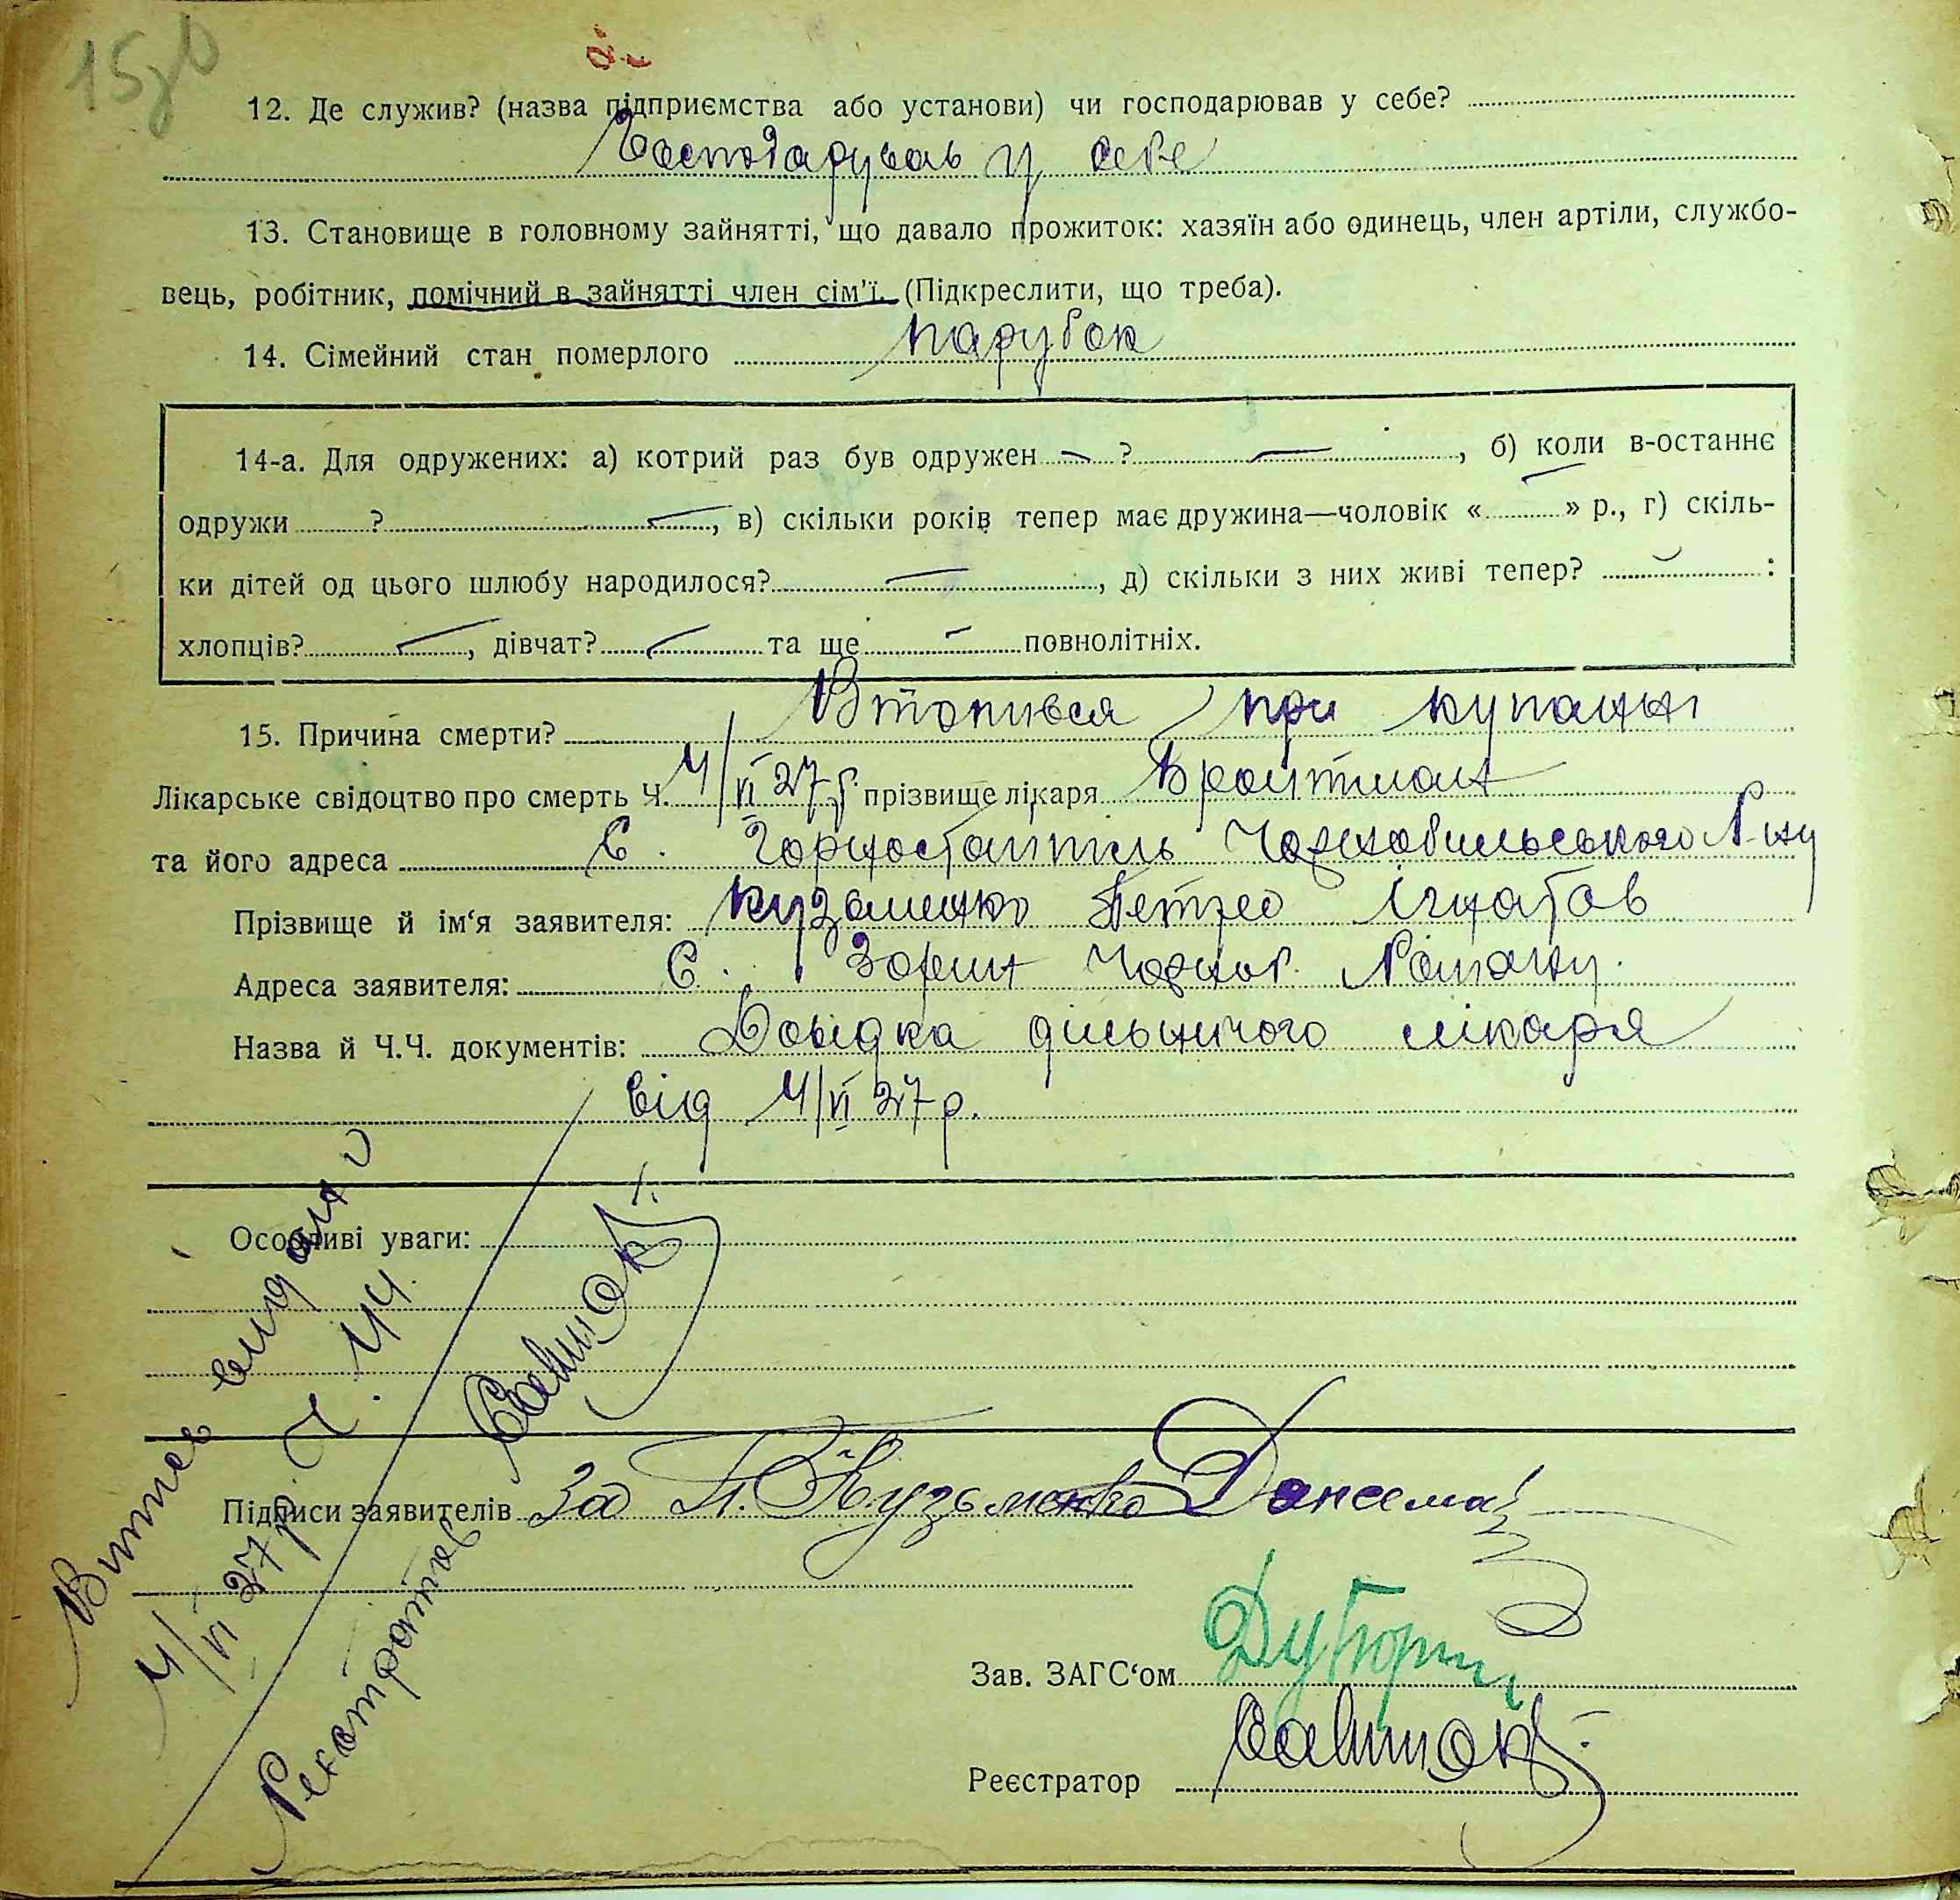 15зв
12. Де служив? (назва підприємства або установи) чи господарював у себе?
Господарував у себе
13. Становище в головному зайнятті, що давало прожиток: хазяїн або одинець, член артіли, службо-
вець, робітник, помічний в зайнятті член сім'ї. (Підкреслити, що треба).
14. Сімейний стан померлого парубок
14-а. Для одружених: а) котрий раз був одружен — ? —, б) коли в-останнє
одружи ? —, в) скільки років тепер має дружина—чоловік « — » р., г) скіль-
ки дітей од цього шлюбу народилося? —, д) скільки з них живі тепер? — :
хлопців? —, дівчат? — та ще — повнолітніх.
15. Причина смерти? Втопився при купанні
Лікарське свідоцтво про смерть Ч. 4/VI 27 р. прізвище лікаря Бройтман
та його адреса С. Горностайпіль Чорнобильського Р-ну
Прізвище й ім'я заявителя: Кузьменко Петро Ігнатов
Адреса заявителя: С. Зорин Чорноб. Району.
Назва й Ч.Ч. документів: Довідка дільничого лікаря
від 4/VI 27 р.
Особливі уваги:
Витяг видано
4/VI 27 р. Ч. 44
Реєстратор
Підписи заявителів За П. Кузьменко
Зав. ЗАГС'ом
Реєстратор